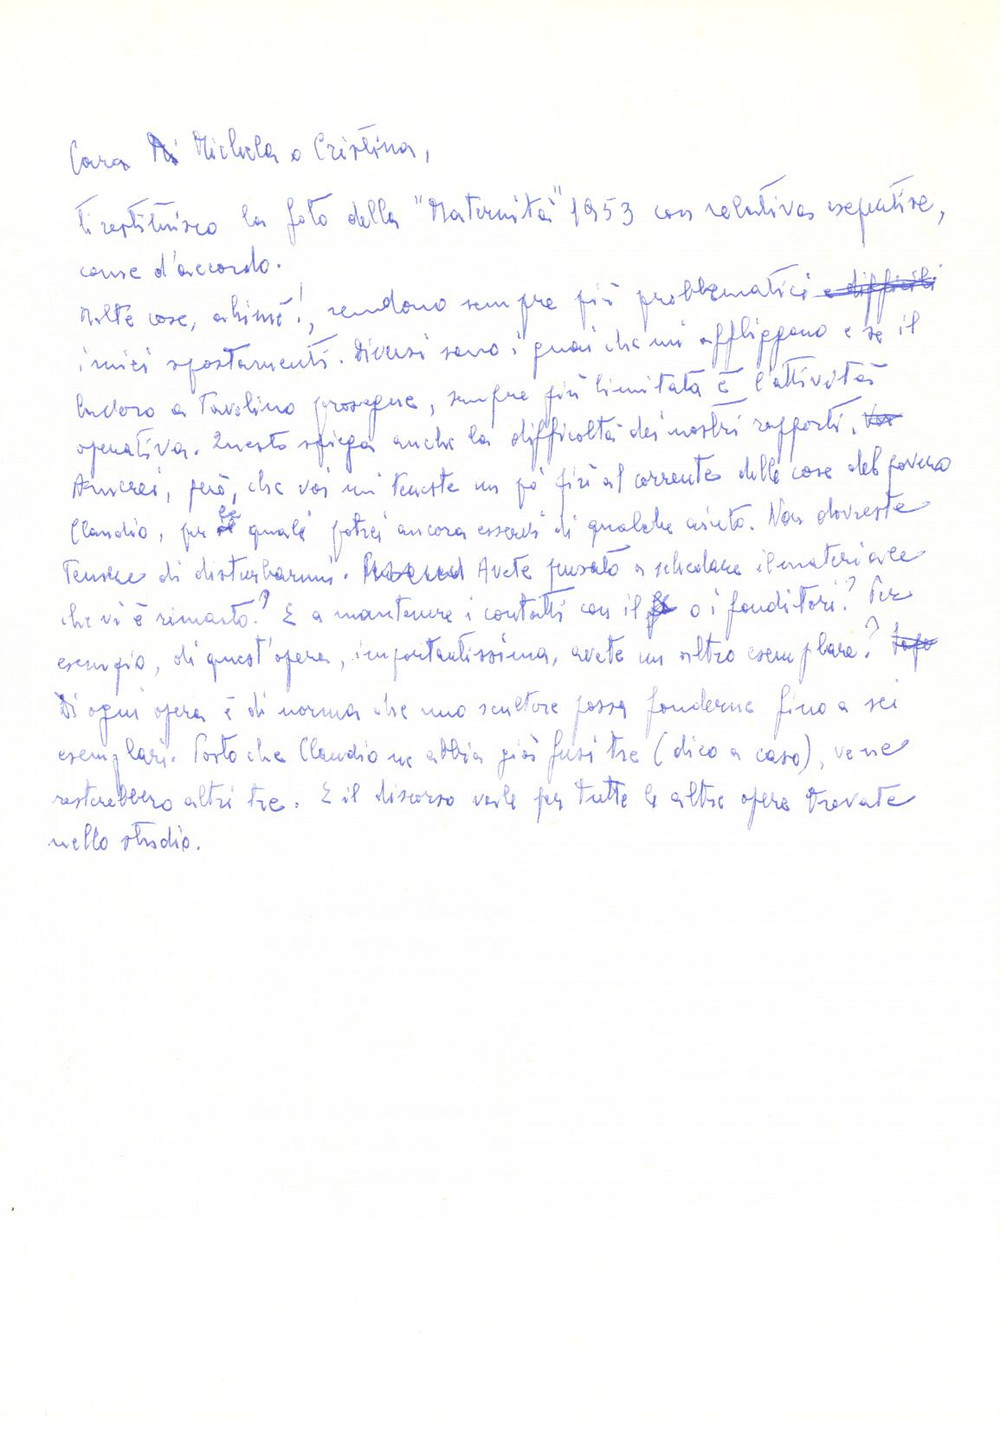 Cara Michela o Cristina,
ti restituisco la foto della "Maternità" 1953 con relativa expertise,
come d'accordo.
Molte cose, ahimè!, rendono sempre più problematici e difficili
i miei spostamenti. Diversi sono i guai che mi affliggono e se il
lavoro a tavolino prosegue, sempre più limitata è l'attività
operativa. Questo spiega anche la difficoltà dei nostri rapporti.
Amerei, però, che voi mi teneste un pò più al corrente delle cose del povero
Claudio, per le quali potrei ancora esservi di qualche aiuto. Non dovreste
temere di disturbarmi. Avete pensato a schedare il materiale
che vi è rimasto? E a mantenere i contatti con il o i fonditori? Per
esempio, di quest'opera, importantissima, avete un altro esemplare?
Di ogni opera è di norma che uno scultore possa fonderne fino a sei
esemplari. Posto che Claudio ne abbia già fusi tre (dico a caso), ve ne
resterebbero altri tre. E il discorso vale per tutte le altre opere trovate
nello studio.